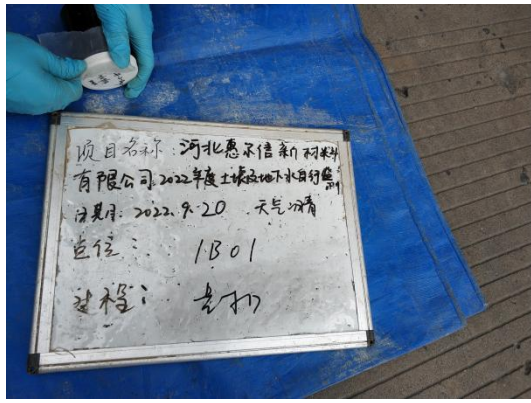 项目名称:河北惠尔信新材料
有限公司2022年度土壤及地下水自行监测
日期:2022.9.20 天气:晴
点位: 1B01
过程: